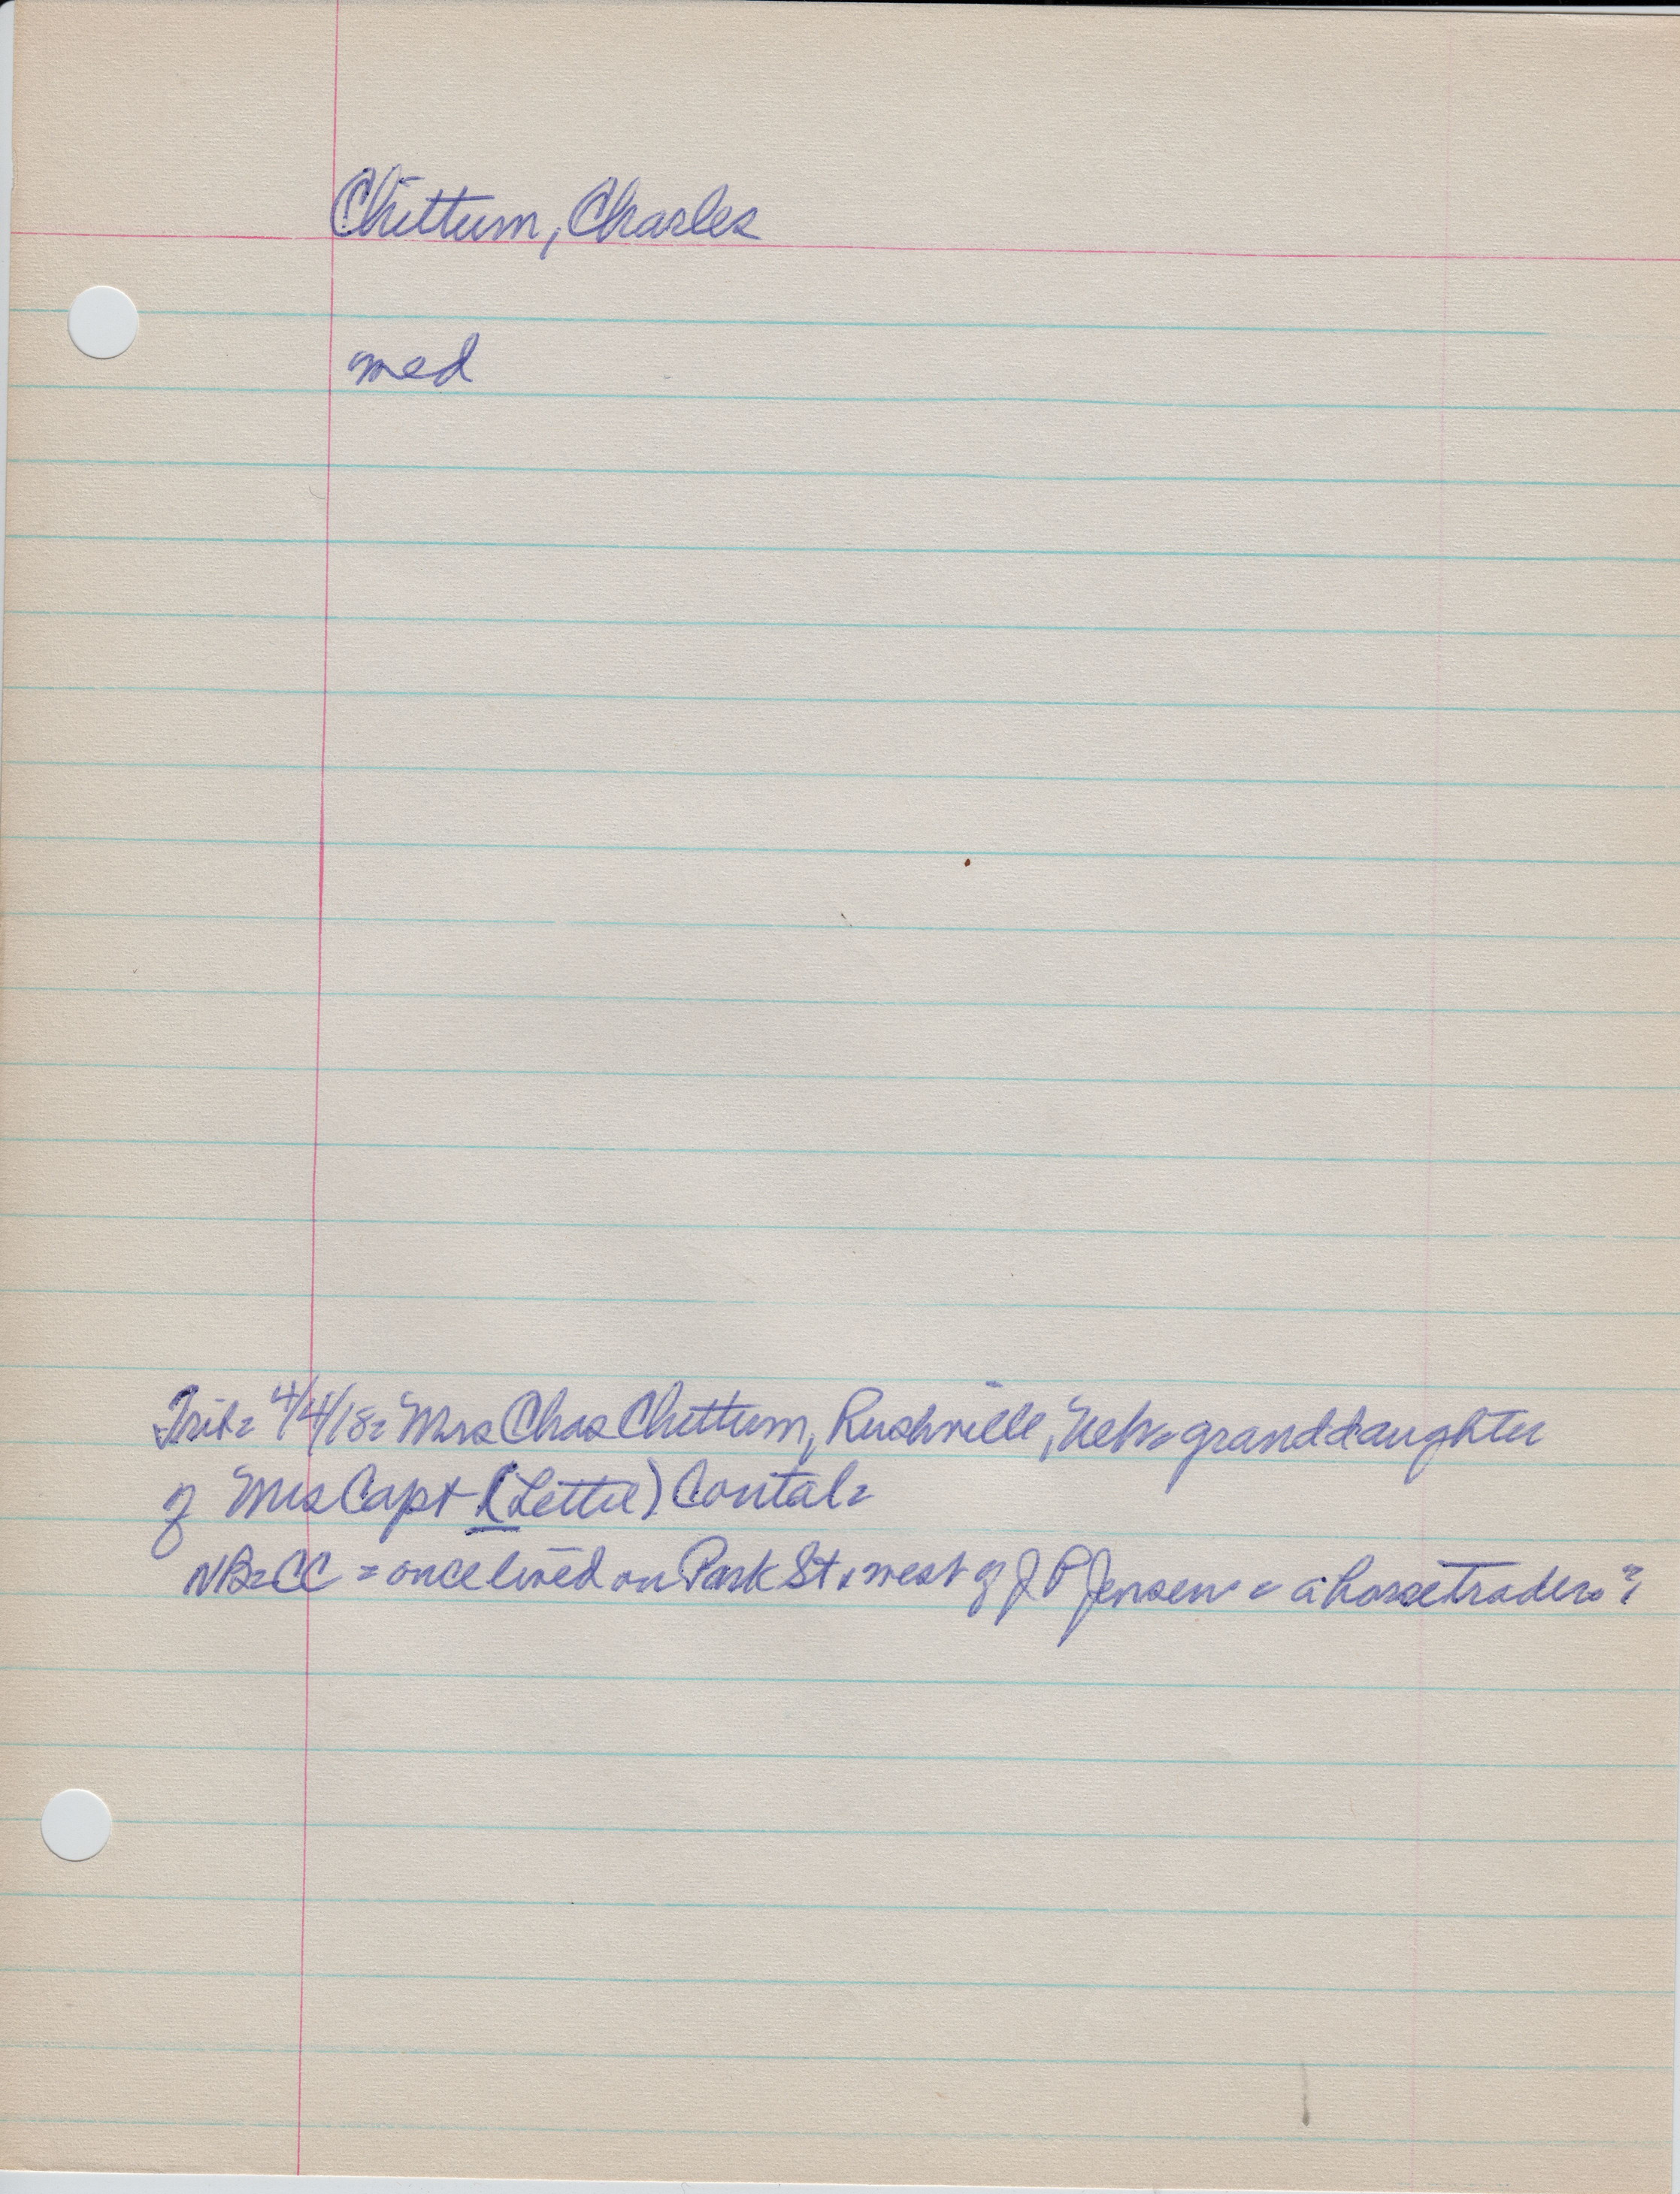 Chittum, Charles
med
Trib= 4/4/18= Mrs Chas Chittum, Rushville, Neb= granddaughter
of Mrs Capt (Lettie) Contal=
NB=CC = once lived on Park St, west of J P Jensen = a horsetrader=?